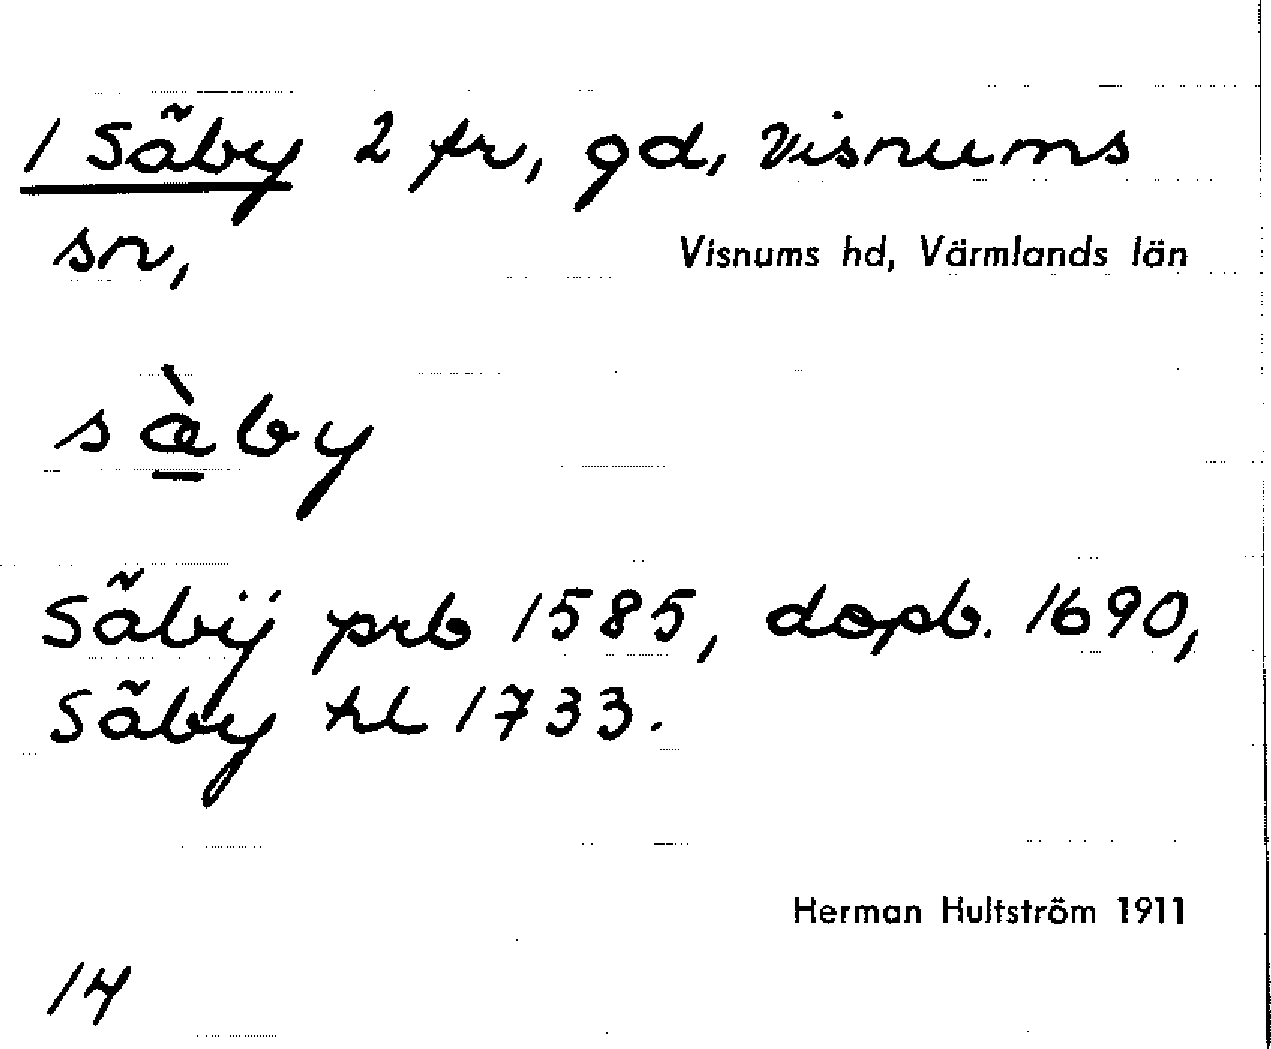 1 Säby 2 fr, gd, Visnums
sn,
Visnums hd, Värmlands län
sàby
Säbÿ prb 1585, dopb. 1690,
Säby hl 1733.
Herman Hultström 1911
14